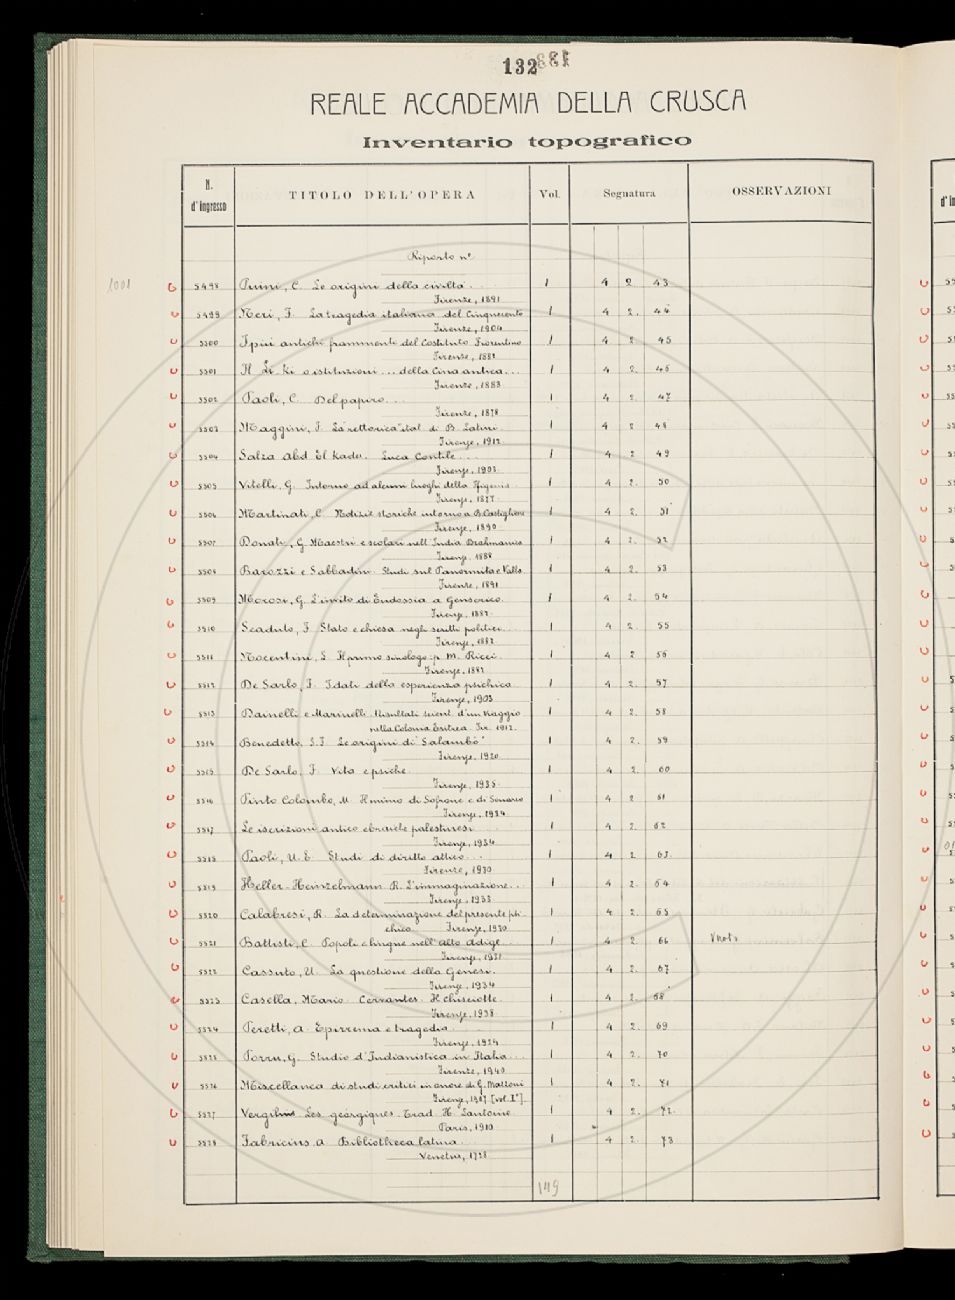 132
REALE ACCADEMIA DELLA CRUSCA
Inventario topografico
N. d'ingresso TITOLO DELL'OPERA Vol. Segnatura OSSERVAZIONI
Riporto nº
1001 5498 Puini, C. Le origini della civiltà . . 1 4 2 43
Firenze, 1891
5499 Neri, F. La tragedia italiana del Cinquecento 1 4 2. 44
Firenze, 1904
5500 I più antichi frammenti del Costituto Fiorentino 1 4 2 45
Firenze, 1882
5501 Il Li-ki o istituzioni ... della Cina antica... 1 4 2. 46
Firenze, 1883
5502 Paoli, C. Del papiro... 1 4 2. 47
Firenze, 1878
5503 Maggini, F. La "rettorica" ital. di B. Latini. 1 4 2 48
Firenze, 1912
5504 Salza Abd El Kader. Luca Contile... 1 4 2 49
Firenze, 1903
5505 Vitelli, G. Intorno ad alcuni luoghi della Ifigenia 1 4 2. 50
Firenze, 1877
5506 Martinati, C. Notizie storiche intorno a B. Castiglione 1 4 2. 51
Firenze, 1890
5507 Donati, G. Maestri e scolari nell'India Brahmanica 1 4 2. 52
Firenze, 1888
5508 Barozzi e Sabbadini. Studi sul Panormita e Valla 1 4 2. 53
Firenze, 1891
5509 Morosi, G. L'invito di Eudossia a Genserico. 1 4 2. 54
Firenze, 1882
5510 Scaduto, F. Stato e chiesa negli scritti politici... 1 4 2. 55
Firenze, 1882
5511 Nocentini, L. Il primo sinologo: p. M. Ricci. 1 4 2 56
Firenze, 1882
5512 De Sarlo, F. I dati della esperienza psichica 1 4 2. 57
Firenze, 1903
5513 Dainelli e Marinelli. Risultati scient. d'un viaggio 1 4 2. 58
nella Colonia Eritrea. Fir. 1912.
5514 Benedetto, L.F. Le origini di "Salambô" 1 4 2. 59
Firenze, 1920
5515 De Sarlo, F. Vita e psiche. 1 4 2. 60
Firenze, 1935
5516 Pinto Colombo, M. Il mimo di Sofrone e di Senarco 1 4 2 61
Firenze, 1934
5517 Le iscrizioni antico ebraiche palestinesi 1 4 2. 62
Firenze, 1934
5518 Paoli, U. E. Studi di diritto attico... 1 4 2. 63
Firenze, 1930
5519 Heller-Heinzelmann R. L'immaginazione... 1 4 2. 64
Firenze, 1933
5520 Calabresi, R. La determinazione del presente psi- 1 4 2. 65
chico. Firenze, 1930
5521 Battisti, C. Popoli e lingue nell'Alto Adige... 1 4 2 66
Firenze, 1931
5522 Cassuto, U. La questione della Genesi. 1 4 2. 67
Firenze, 1934
5523 Casella, Mario. Cervantes. Il Chisciotte. 1 4 2. 68
Firenze, 1938
5524 Peretti, A. Epirrema e tragedia. 1 4 2. 69
Firenze, 1939
5525 Porru, G. Studio d'Indianistica in Italia... 1 4 2. 70
Firenze, 1940
5526 Miscellanea di studi critici in onore di G. Mazzoni 1 4 2. 71
Firenze, 1907. [vol. Iº]
5527 Vergilius. Les géorgiques. Trad. H. Lantoine 1 4 2. 72.
Paris, 1910
5528 Fabricius. A. Bibliotheca latina... 1 4 2. 73
Venetiis, 1728
149